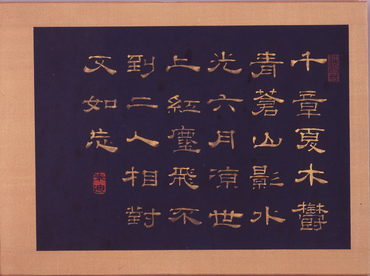 千章夏木欝
青蒼山影水
光六月凉世
上紅塵飛不
到二人相對
久如忘